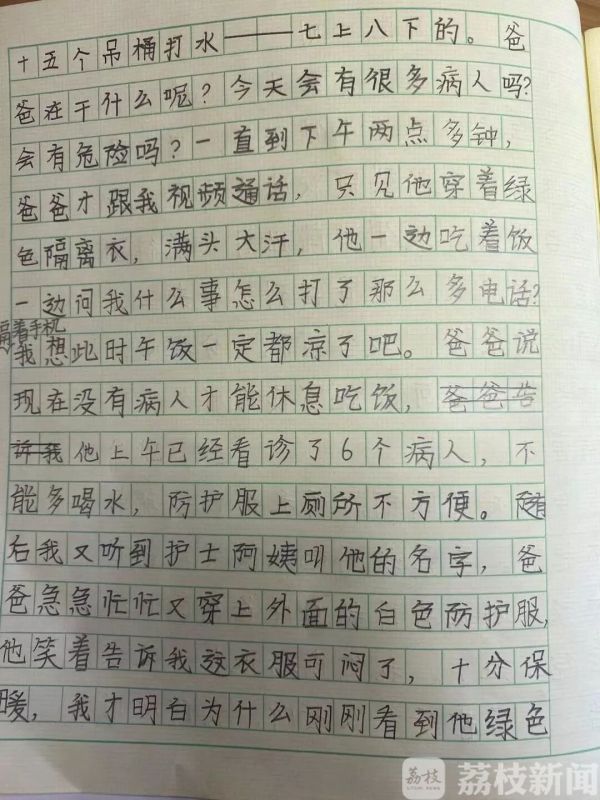 十五个吊桶打水——七上八下的。爸
爸在干什么呢？今天会有很多病人吗？
会有危险吗？一直到下午两点多钟，
爸爸才跟我视频通话，只见他穿着绿
色隔离衣，满头大汗，他一边吃着饭
一边问我什么事怎么打了那么多电话？
隔着手机
我想此时午饭一定都凉了吧。爸爸说
现在没有病人才能休息吃饭，爸爸告
诉我他上午已经看诊了6个病人，不
能多喝水，防护服上厕所不方便。随
后我又听到护士阿姨叫他的名字，爸
爸急急忙忙又穿上外面的白色防护服，
他笑着告诉我这衣服可闷了，十分保
暖，我才明白为什么刚刚看到他绿色
荔枝
荔枝新闻